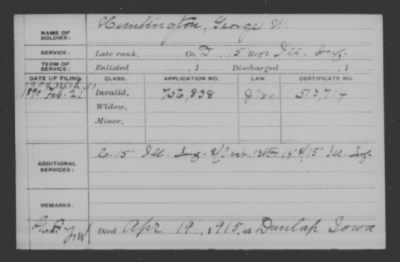 NAME OF SOLDIER: Huntington, George W.
SERVICE: Late rank, Co. I, 15 Reg't Ill. Inf.
TERM OF SERVICE: Enlisted , 1 Discharged , 1
DATE OF FILING. CLASS. APPLICATION NO. LAW. CERTIFICATE NO.
Invalid, 756,838 513,714
Widow,
Minor,
ADDITIONAL SERVICES: Co. 15 Ill. Inf.
REMARKS:
Died Apr 19, 1915, at Dunlap Iowa